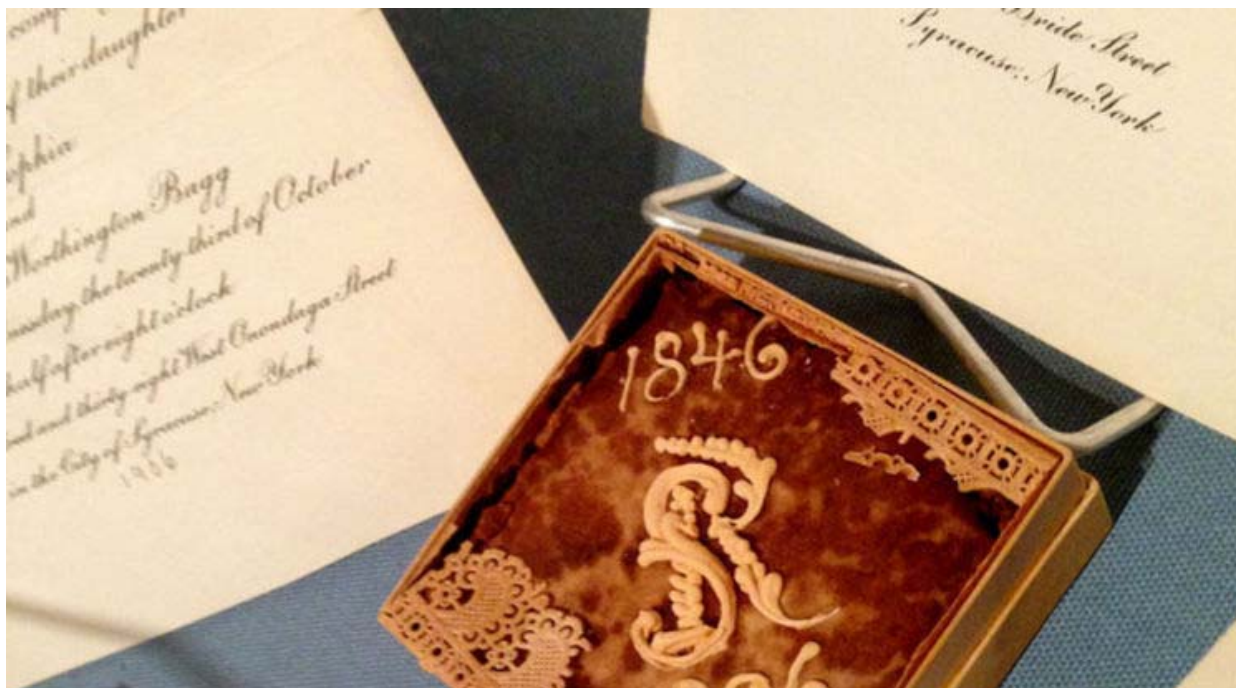 of their daughter
and
Worthington Bagg
the twenty third of October
half after eight o'clock
and thirty eight West Onondaga Street
in the City of Syracuse, New York
Bride Street
Syracuse, New York
1846